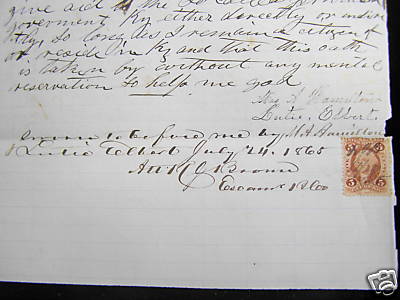 give aid to the so called
government Ky either directly or indirec
tly so long as I remain a citizen of
or reside in Ky and that this oath
is taken by without any mental
reservation so help me god
Mrs A Hamilton
Lutie Elbert
sworn to before me by M. A. Hamilton
& Lutie Elbert July 24. 1865
Att
5
5
ebay